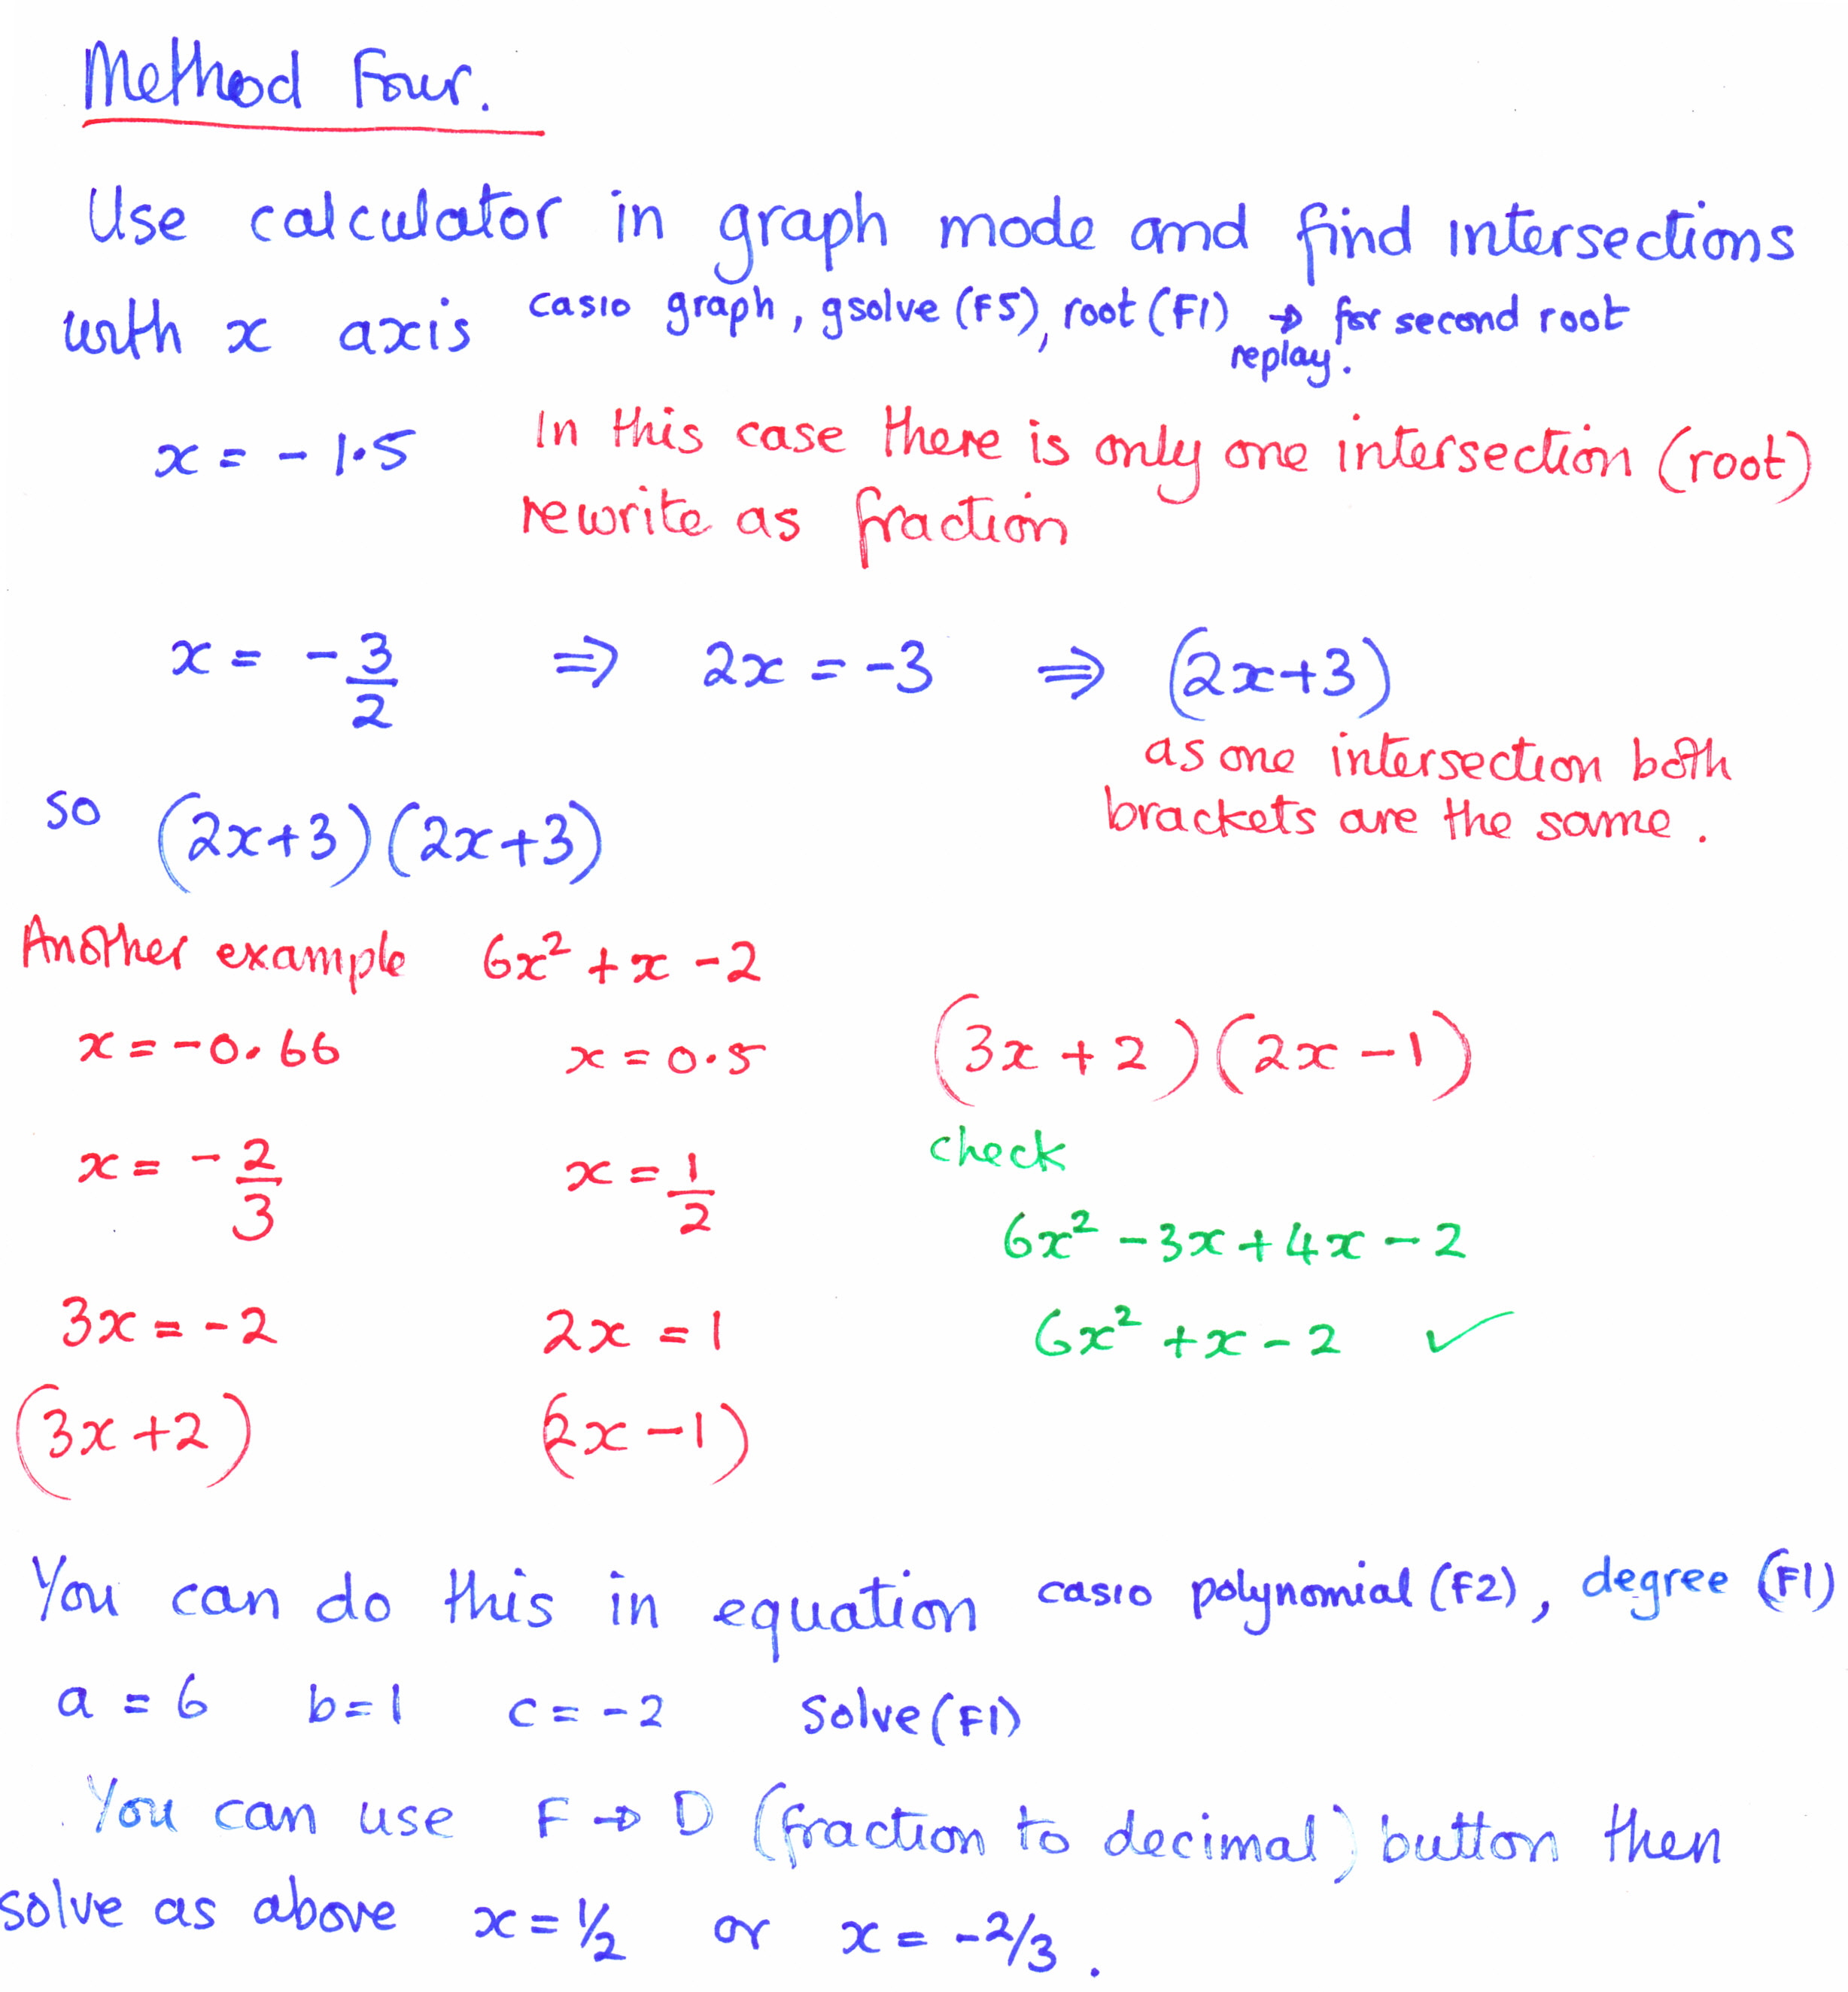 Method Four.
Use calculator in graph mode and find intersections
with x axis casio graph, gsolve (F5), root (F1) → for second root
replay.
x = - 1.5 In this case there is only one intersection (root)
rewrite as fraction
x = - 3/2 ⇒ 2x = -3 ⇒ (2x+3)
as one intersection both
brackets are the same.
so (2x+3)(2x+3)
Another example 6x² + x - 2
x = -0.66 x = 0.5 (3x + 2)(2x - 1)
x = - 2/3 x = 1/2 check
6x² - 3x + 4x - 2
3x = -2 2x = 1 6x² + x - 2 ✓
(3x + 2) (2x - 1)
You can do this in equation casio polynomial (F2), degree (F1)
a = 6 b = 1 c = -2 Solve (F1)
You can use F → D (fraction to decimal) button then
solve as above x = 1/2 or x = -2/3.